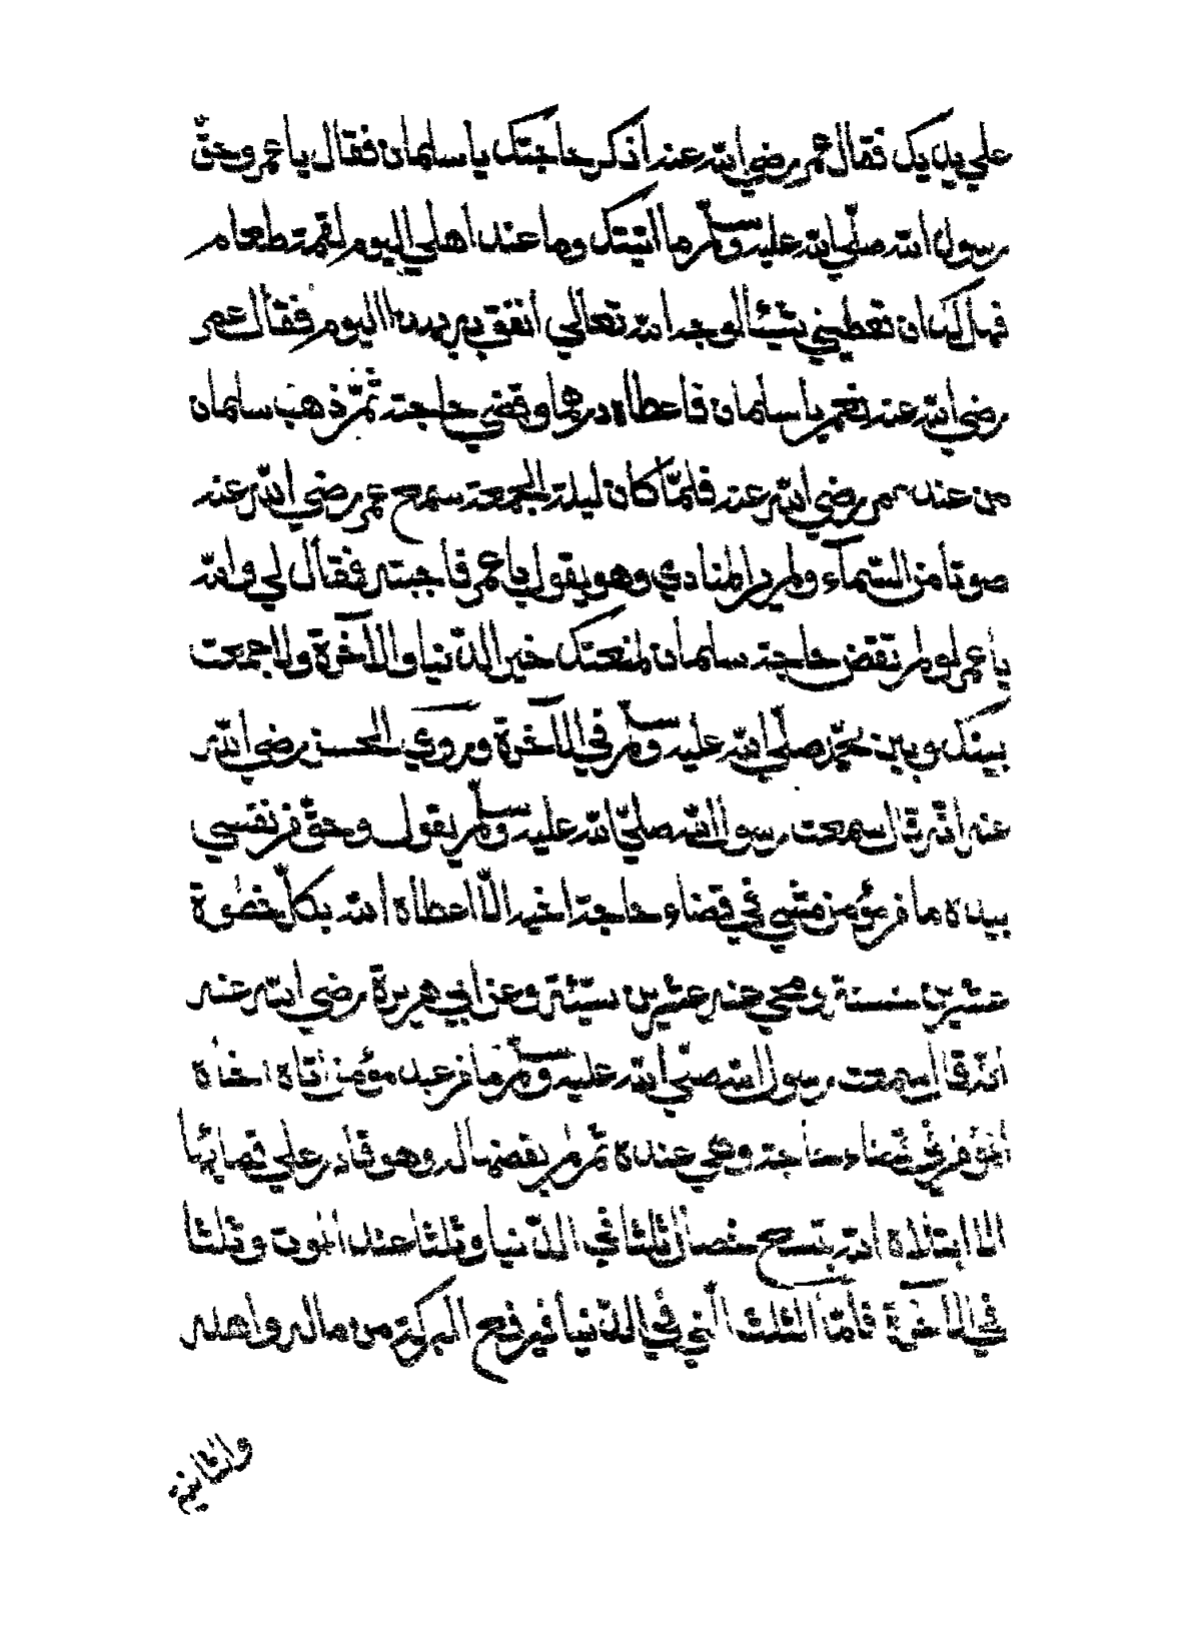 علي يديك فقال عمر رضي الله عنه اذكر حاجتك يا سليمان فقال يا عمر وحقّ
رسول الله صلّي الله عليه وسلّم ما اتيتك وما عند اهلي اليوم لقمة طعام
فهل لك ان تعطيني شيئا لوجه الله تعالي انفق به اليوم فقال عمر
رضي الله عنه نعم يا سليمان فاعطاه درهما وقضي حاجته ثمّ ذهب سليمان
من عند عمر رضي الله عنه فلمّا كان ليلة الجمعة سمع عمر رضي الله عنه
صوتا من السّمآء ولم ير المنادي وهو يقول يا عمر فاجبته فقال لي والله
يا عمر لو لم تقض حاجة سليمان لمنعتك خير الدّنيا والآخرة ولا جمعت
بينك وبين محمّد صلّي الله عليه وسلّم في الآخرة وروي الحسن رضي الله
عنه انّه قال سمعت رسول الله صلّي الله عليه وسلّم يقول وحقّ من نفسي
بيده ما من مؤمن مشي في قضاء حاجة اخيه الّا اعطاه الله بكلّ خطوة
عشرين حسنة ومحي عنه عشرين سيّئة وعن ابي هريرة رضي الله عنه
انّه قال سمعت رسول الله صلّي الله عليه وسلّم ما من عبد مؤمن اتاه اخاه
في قضاء حاجة وهي عنده ثمّ لم يقضها له وهو قادر علي قضائها
الّا ابتلاه الله بتسع خصال ثلثا في الدّنيا وثلثا عند الموت وثلثا
في الآخرة فامّا الثلث الّتي في الدّنيا فيرفع البركة من ماله واهله
والثانية